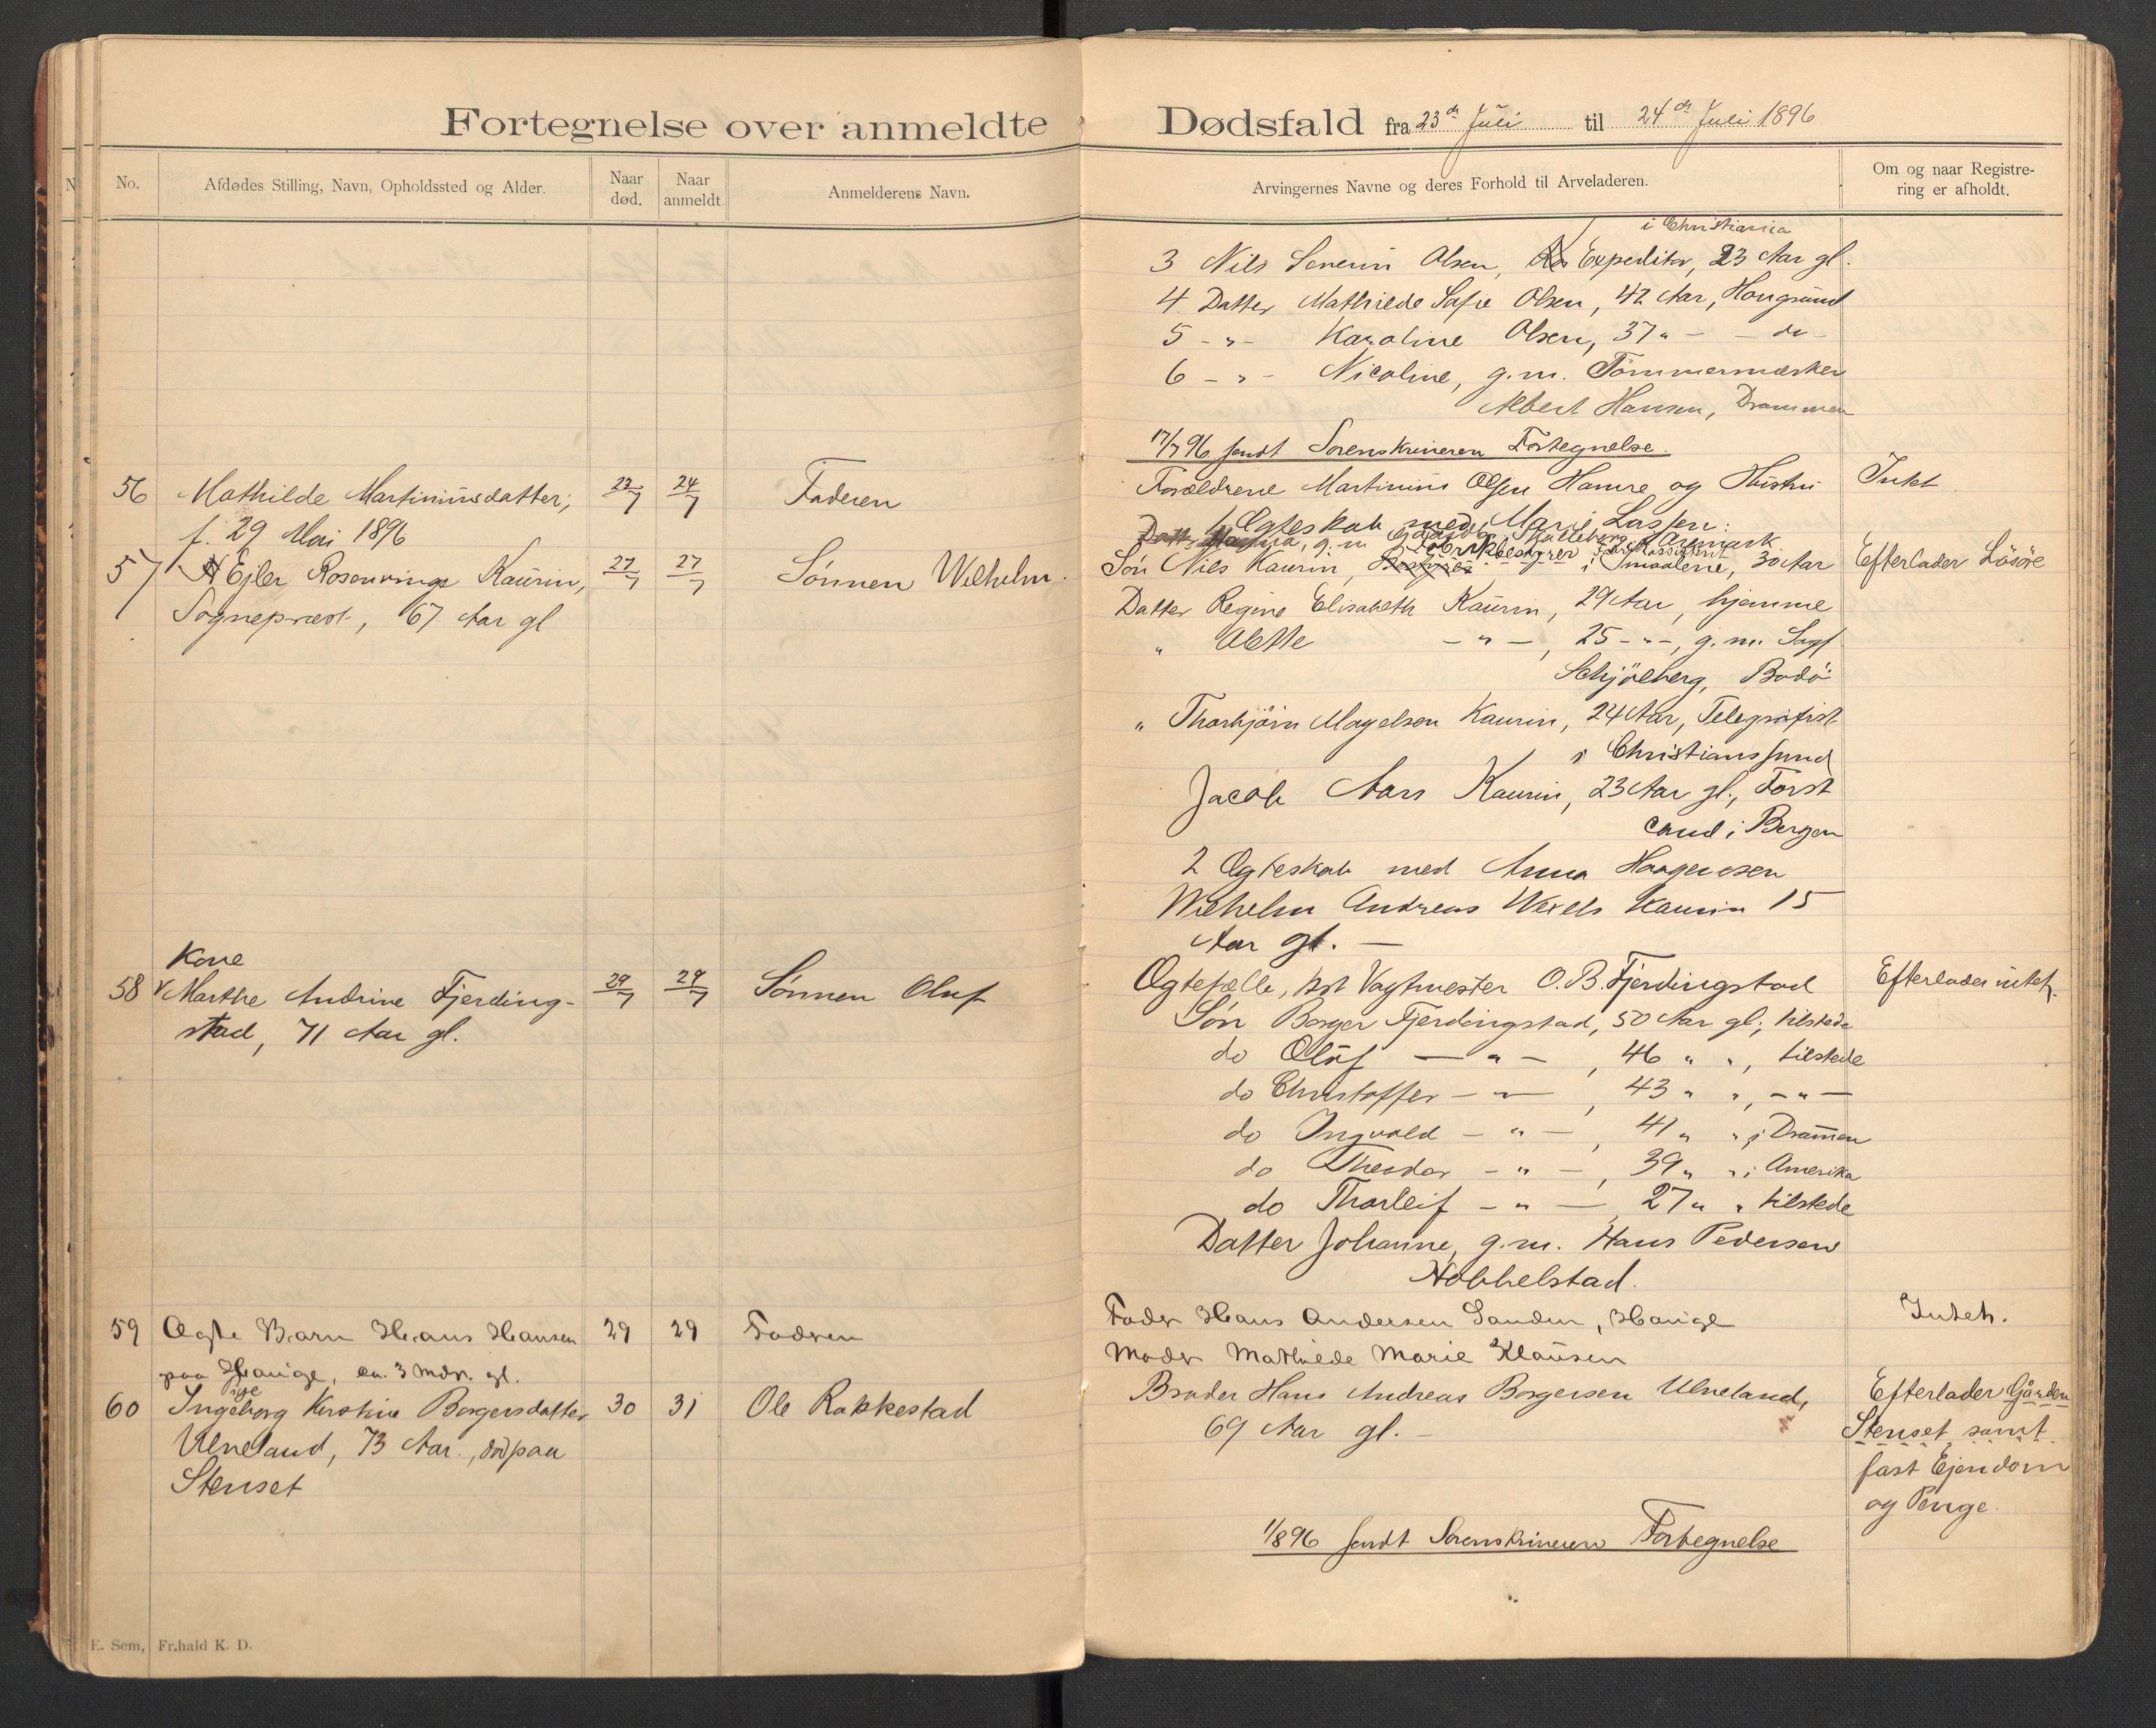 Fortegnelse over anmeldte Dødsfald fra 23de Juli til 24de Juli 1896
No.
Afdødes Stilling, Navn, Opholdssted og Alder.
Naar død.
Naar anmeldt
Anmelderens Navn.
Arvingernes Navne og deres Forhold til Arveladeren.
Om og naar Registre-
ring er afholdt.
i Christiania
3 Nils Severin Olsen, Expeditør, 23 Aar gl.
4. Datter Mathilde Sofie Olsen, 42 Aar, Hougsund
5 - " - Karoline Olsen, 37 " - - do -
6 - " - Nicoline, g.m. Tømmermærker
Albert Hansen, Drammen
17/7 96 sendt Sorenskriveren Fortegnelse.
56 Mathilde Martiniusdatter,
f. 29 Mai 1896
23/7 24/7 Faderen
Forældrene Martinius Olsen Hamre og Hustru
Intet
57 Ejler Rosenvinge Kaurin,
Sognepræst, 67 Aar gl
27/7 27/7 Sønnen Wilhelm.
1 Ægteskab med Marie Lassen:
Datter g.m. Aremark
Fabrikbestyrer
Søn Nils Kaurin, Bestyrer i Smaalene, 30 Aar
Efterlader Løsøre
Datter Regine Elisabeth Kaurin, 29 Aar, hjemme
" Alette - " - , 25 - " -, g.m. Sagf.
Schjølberg, Bodø
" Thorbjørn Magelsen Kaurin, 24 Aar, Telegrafist
i Christianssund
Jacob Aars Kaurin, 23 Aar gl., Forst
cand i Bergen
2 Ægteskab med Anna Haagensen
Wilhelm Andreas Wexels Kaurin 15
Aar gl. -
Kone
58 Marthe Andrine Fjerding-
stad, 71 Aar gl.
29/7 29/7 Sønnen Oluf
Ægtefælle, fhv Vagtmester O. B. Fjerdingstad
Efterlader intet.
Søn Borger Fjerdingstad, 50 Aar gl., tilstede
do Oluf - " - , 46 " ", tilstede
do Christoffer - " - , 43 " ", - " -
do Ingvald - " - , 41 " " i Drammen
do Theodor - " - , 39 " " i Amerika
do Thorleif - " - , 27 " " tilstede
Datter Johanne, g.m. Hans Pedersen
Hobbelstad.
59 Ægte Barn Hans Hansen
paa Hauge, ca. 3 Mdr. gl.
29 29 Faderen
Fader Hans Andersen Sanden, Hauge
Moder Mathilde Marie Klausen
Intet.
Pige
60 Ingeborg Kirstine Borgersdatter
Ulveland, 73 Aar., død paa
Stenset
30 31 Ole Rakkestad
Broder Hans Andreas Borgersen Ulveland,
69 Aar gl. -
Efterlader Gården
Stenset samt
fast Ejendom
og Penge.
1/8 96 sendt Sorenskriveren Fortegnelse
E. Sem, Fr.hald K. D.